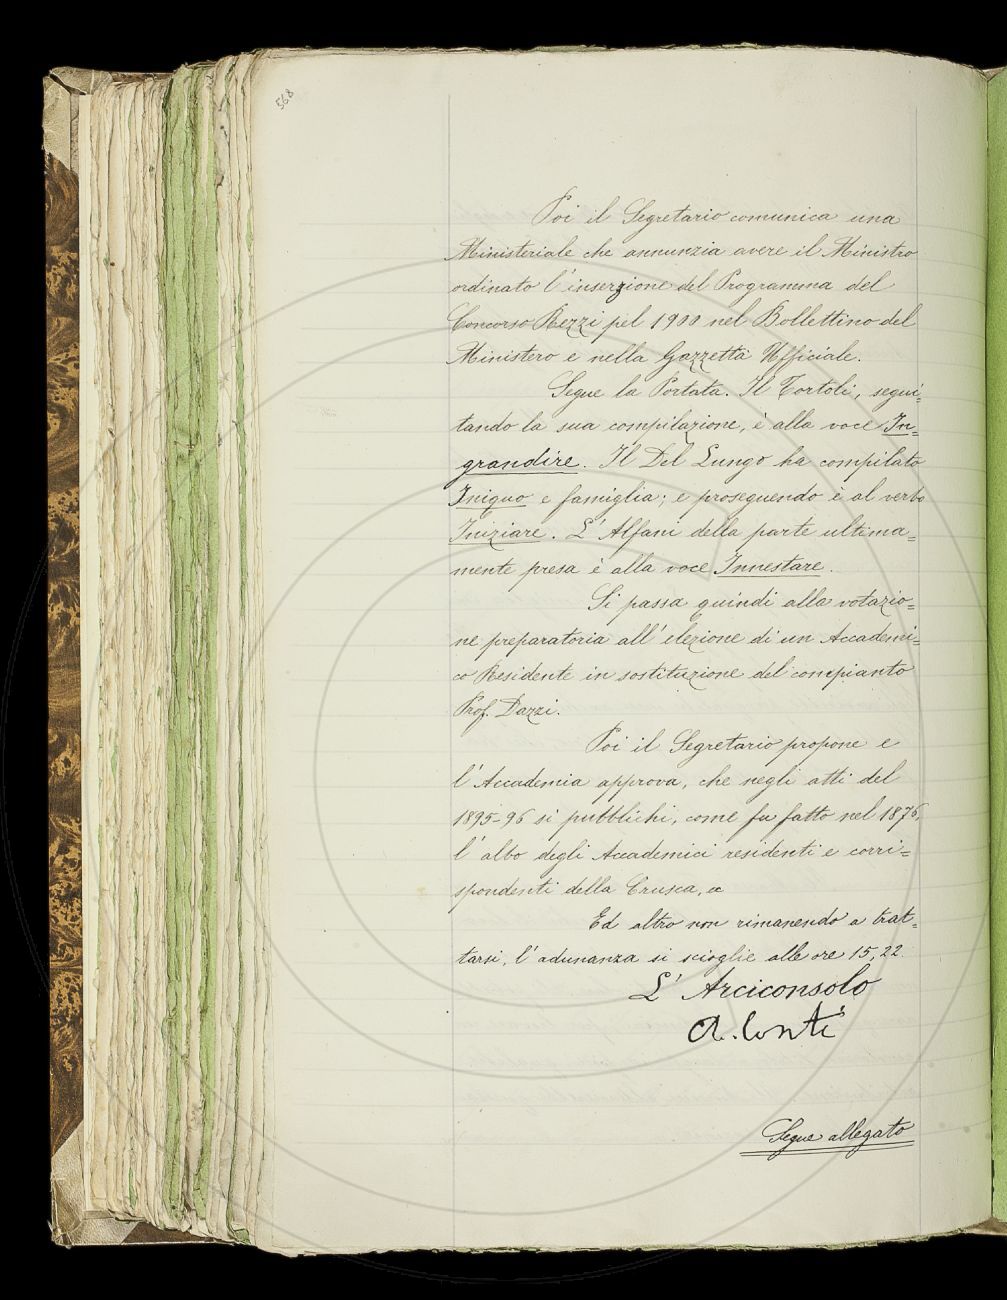 568
Poi il Segretario comunica una
Ministeriale che annunzia avere il Ministro
ordinato l'inserzione del Programma del
Concorso Rezzi pel 1900 nel Bollettino del
Ministero e nella Gazzetta Ufficiale.
Segue la Portata. Il Tortoli, segui=
tando la sua compilazione, è alla voce In=
grandire. Il Del Lungo ha compilato
Iniquo e famiglia; e proseguendo è al verbo
Iniziare. L'Alfani della parte ultima=
mente presa è alla voce Innestare.
Si passa quindi alla votazio=
ne preparatoria all'elezione di un Accademi=
co Residente in sostituzione del compianto
Prof. Dazzi.
Poi il Segretario propone e
l'Accademia approva, che negli atti del
1895-96 si pubblichi, come fu fatto nel 1876,
l'albo degli Accademici residenti e corri=
spondenti della Crusca, ec
Ed altro non rimanendo a trat=
tarsi, l'adunanza si scioglie alle ore 15,22.
L'Arciconsolo
A. Conti
Segue allegato